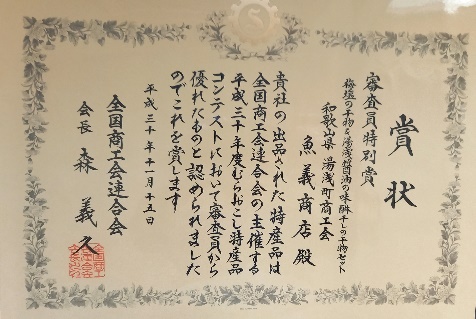 賞状
審査員特別賞
梅塩の干物&湯浅醤油の味醂干しの干物セット
和歌山県 湯浅町商工会
魚義商店 殿
貴社の出品された特産品は
全国商工会連合会の主催する
平成三十年度むらおこし特産品
コンテストにおいて審査員から
優れたものと認められました
のでこれを賞します
平成三十年十一月十五日
全国商工会連合会
会長 森 義久